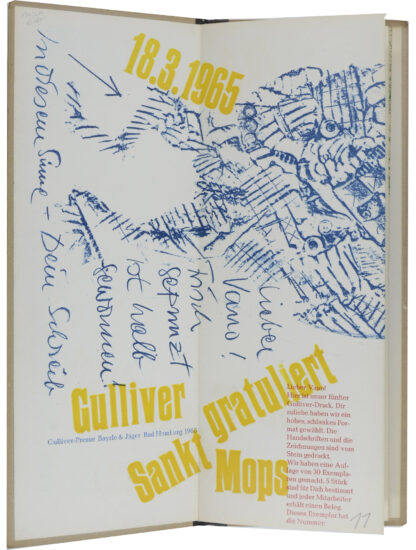 18.3.1965
Lieber
Vano!
Frisch
geputzt
ist halb
gewonnen!
In diesem Sinne – Dein Schreib
Gulliver
gratuliert
Sankt
Mops
Gulliver-Presse Bayrle & Jäger Bad Homburg 1965
Lieber Vano!
Hier ist unser fünfter
Gulliver-Druck. Dir
zuliebe haben wir ein
hohes, schlankes For-
mat gewählt. Die
Handschriften und die
Zeichnungen sind vom
Stein gedruckt.
Wir haben eine Auf-
lage von 30 Exempla-
ren gemacht. 5 Stück
sind für Dich bestimmt
und jeder Mitarbeiter
erhält einen Beleg.
Dieses Exemplar hat
die Nummer
11